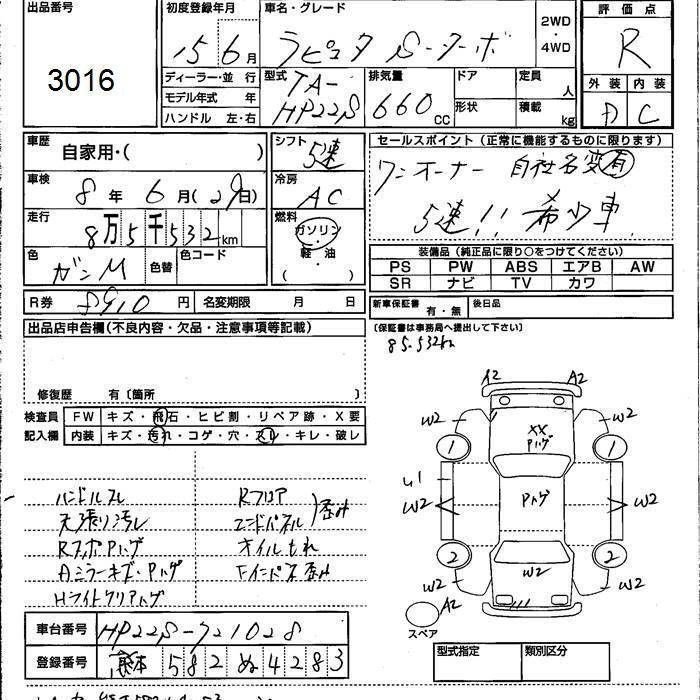 出品番号
3016
初度登録年月
15 6月
車名・グレード
ラピュタ S-ターボ
2WD
・
4WD
評価点
R
ディーラー・並行
モデル年式 年
ハンドル 左・右
型式
TA-
HP22S
排気量
660 CC
ドア
形状
定員
人
積載
kg
外装
D
内装
C
車歴
自家用・( )
シフト
5速
セールスポイント(正常に機能するものに限ります)
ワンオーナー 自社名変有
5速!! 希少車
車検
8年 6月(29日)
冷房
AC
走行
8万5千532km
燃料
ガソリン
・
軽・油
( )
色
ガンM
色替
色コード
装備品(純正品に限り○をつけてください)
PS PW ABS エアB AW
SR ナビ TV カワ
R券 8910円
名変期限 月 日
新車保証書 有・無
後日品
(保証書は事務局へ提出して下さい)
85.532km
出品店申告欄(不良内容・欠品・注意事項等記載)
修復歴 有〔箇所 〕
検査員
記入欄
FW キズ・飛石・ヒビ割・リペア跡・X要
内装 キズ・汚れ・コゲ・穴・スレ・キレ・破レ
ハンドルスレ
天張り汚レ
RスポPハゲ
Aミラーキズ・Pハゲ
Hライトクリアハゲ
Rフロア
エンドパネル
歪み
オイルもれ
Fインパネ歪み
A2 A2
W2 W2
XX
Pハゲ
1 1
Pハゲ
U1
W2 W2
2 2
W2
W2 W2
A2
スペア
車台番号 HP22S-721028
登録番号 熊本 582 ぬ 4283
型式指定
類別区分